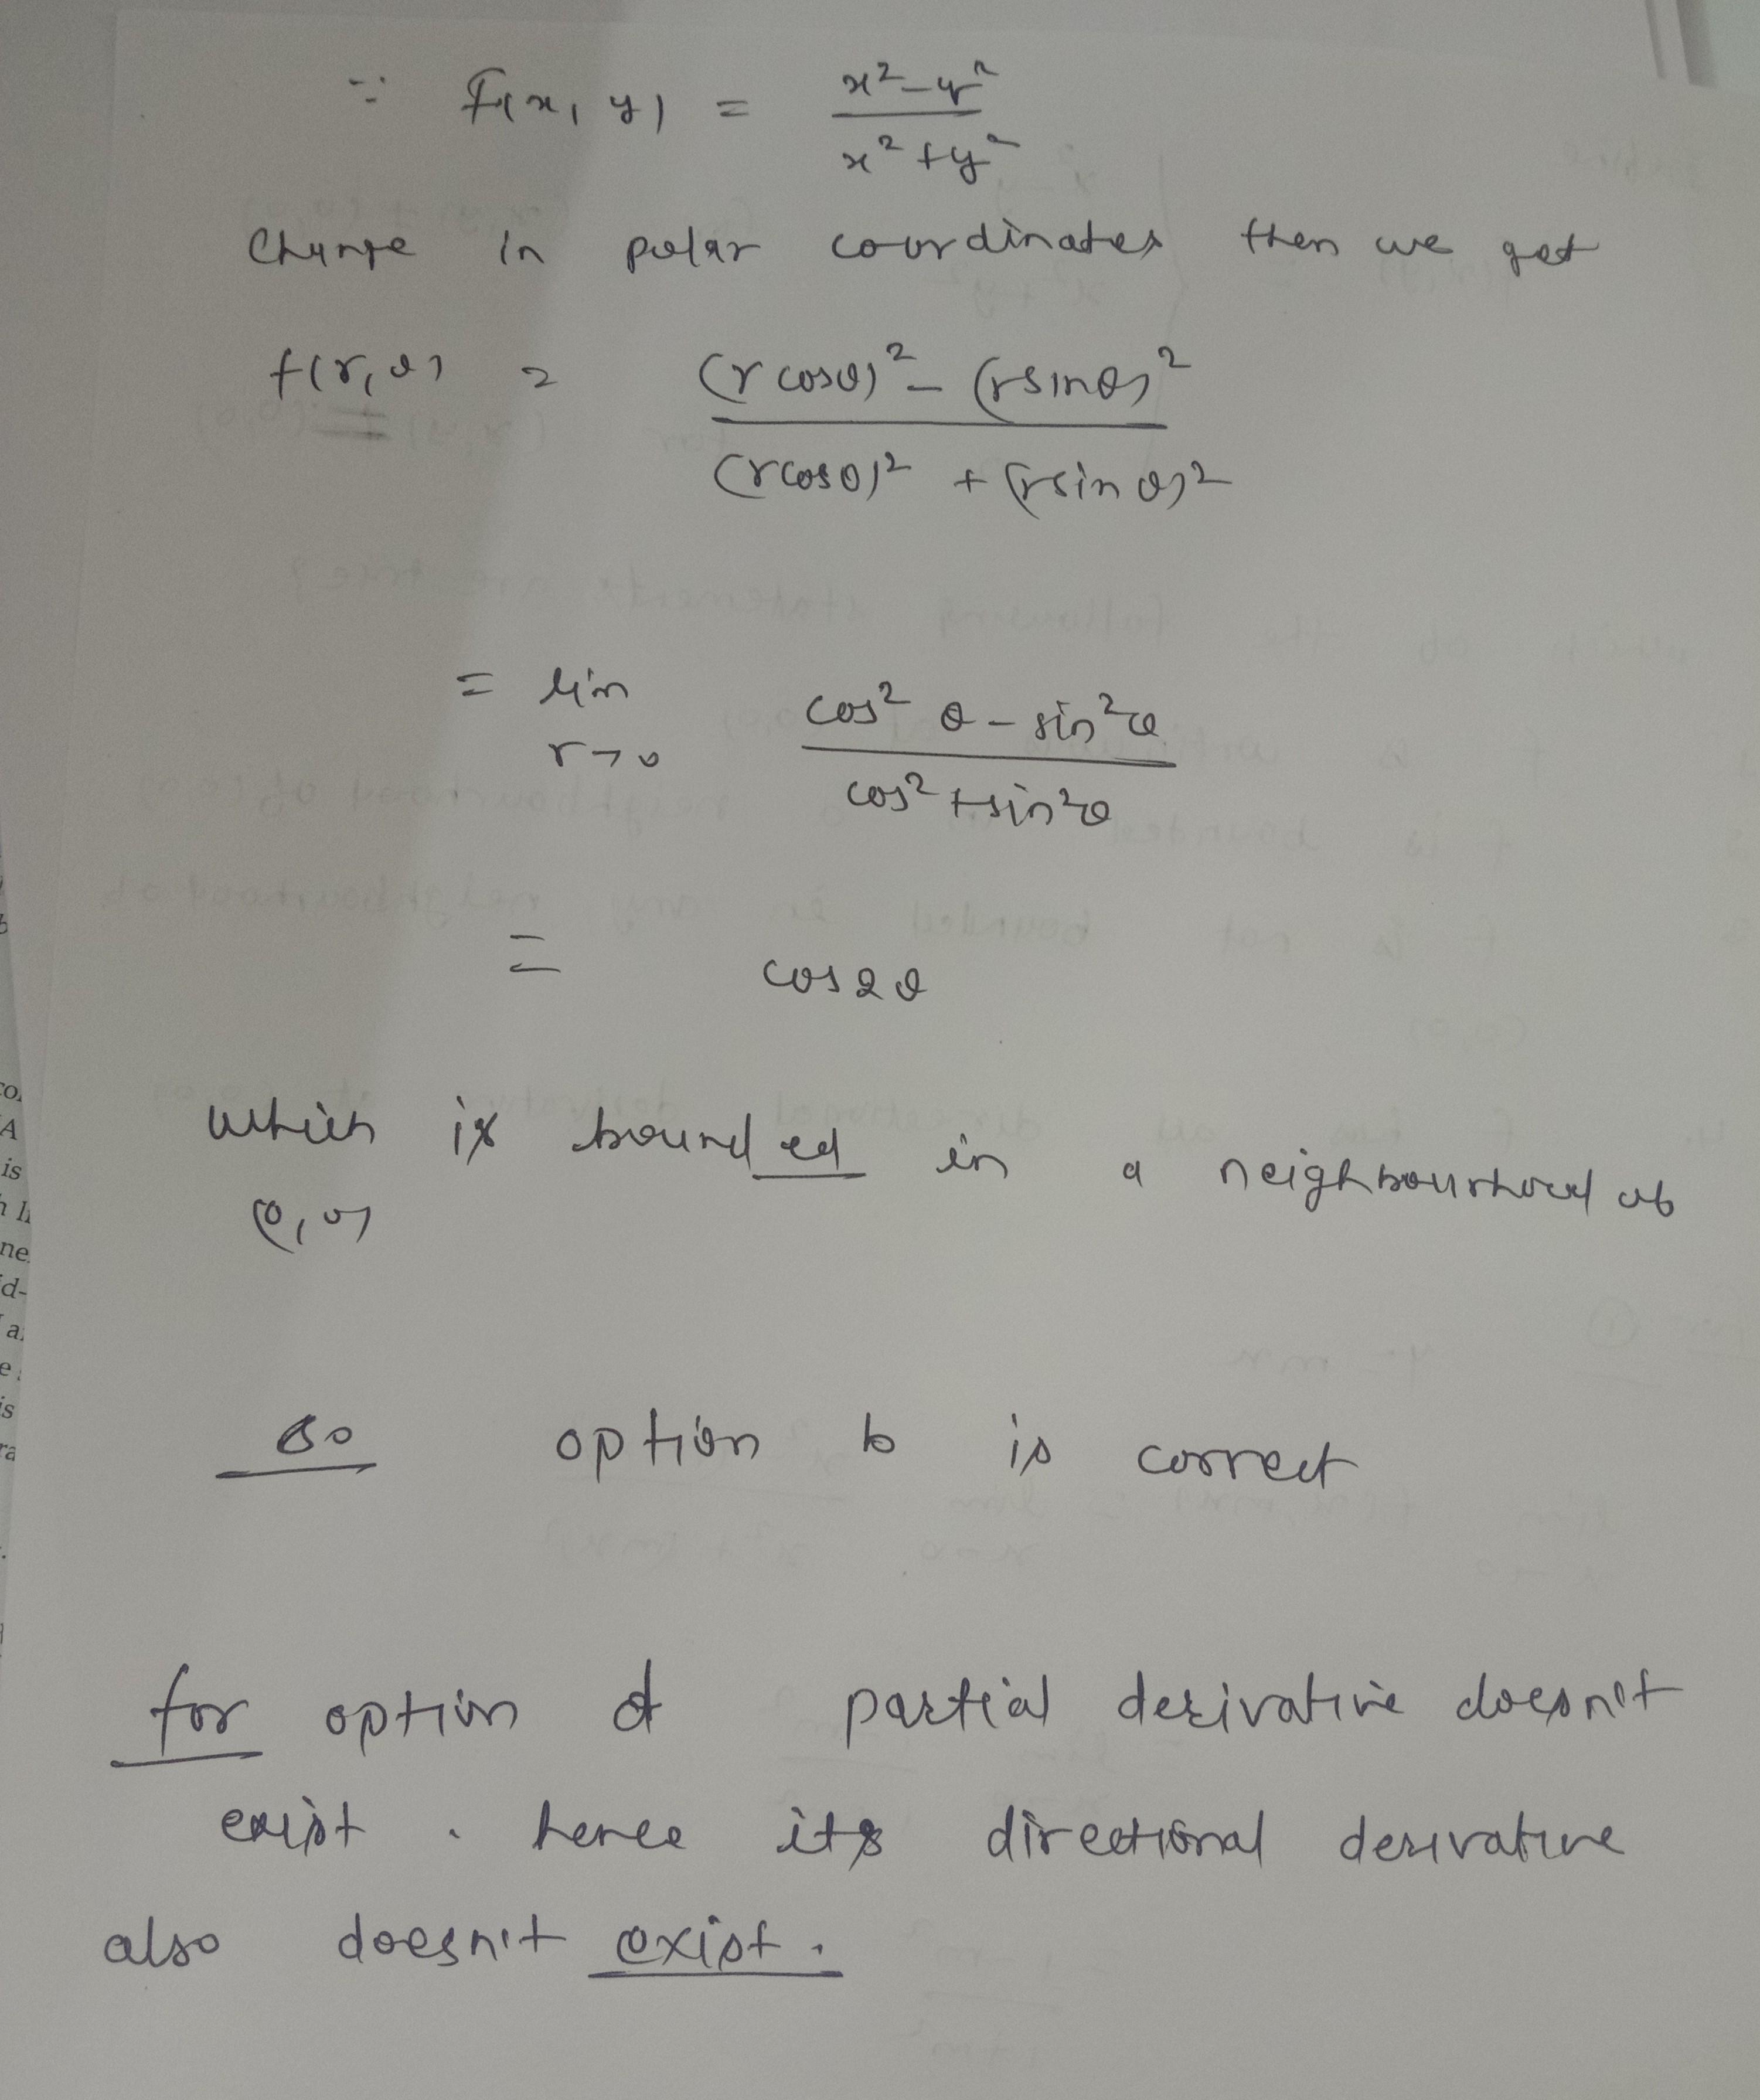 ∵ f(x, y) = x² - y² / x² + y²
Change in polar coordinates then we get
f(r, θ) = (r cosθ)² - (r sinθ)² / (r cosθ)² + (r sin θ)²
= lim r→0 cos² θ - sin² θ / cos² + sin² θ
= cos 2θ
which is bounded in a neighbourhood of
(0, 0)
so option b is correct
for option d partial derivative doesn't
exist. hence its directional derivative
also doesn't exist.
co
A
is
ne
id-
a
e
is
ra